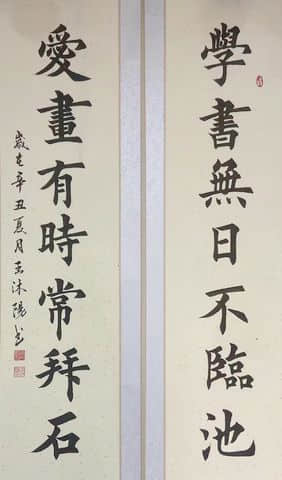 學書無日不臨池
愛畫有時常拜石
歲在辛丑夏月王沐陽書